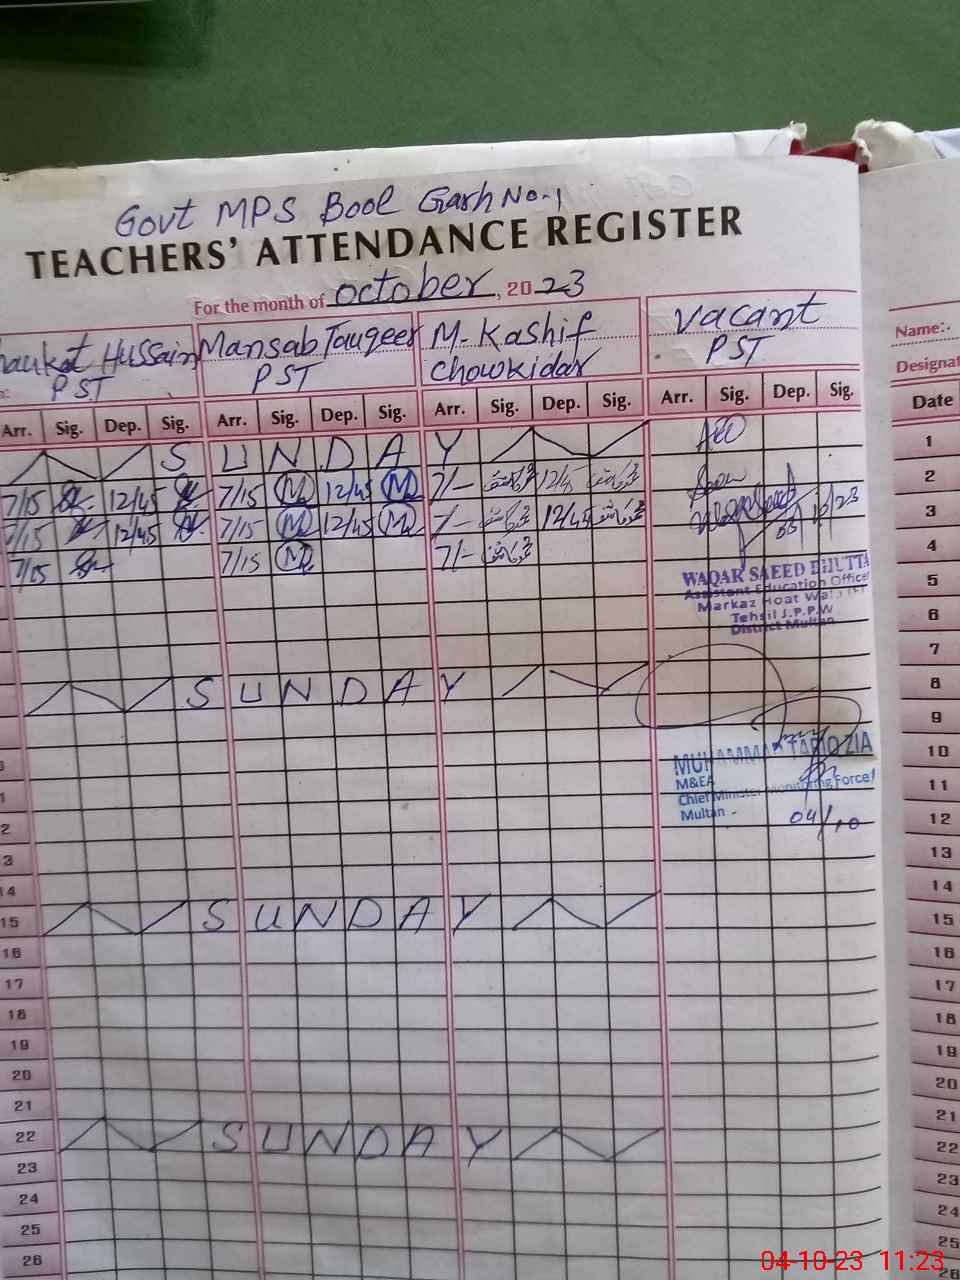 Govt MPS Bool Garh No.1
TEACHERS' ATTENDANCE REGISTER
For the month of october, 2023
haukat Hussain Mansab Tauqeer M. Kashif Vacant
PST PST Chowkidar PST
Arr. Sig. Dep. Sig. Arr. Sig. Dep. Sig. Arr. Sig. Dep. Sig. Arr. Sig. Dep. Sig.
Name:-
Designat
Date
S U N D A Y 1
7/15 12/45 7/15 M 12/45 M 7/- 12/45 2
7/15 12/45 7/15 M 12/45 M 7/- 12/45 3
7/15 7/15 M 7/- 4
WAQAR SAEED BHUTTA 5
Assistent Education Officer
Markaz Hoat Wala
6
Tehsil J.P.P.W
District Multan
7
S U N D A Y 8
9
MUHAMMAD TARIQ ZIA 10
M&EA
Chief Minister Monitoring Force 11
Multan - 04/10 12
13
14 14
15 S U N D A Y 15
16 16
17 17
18 18
19 19
20 20
21 21
22 S U N D A Y 22
23 23
24 24
25 25
26 26
04-10-23 11:23